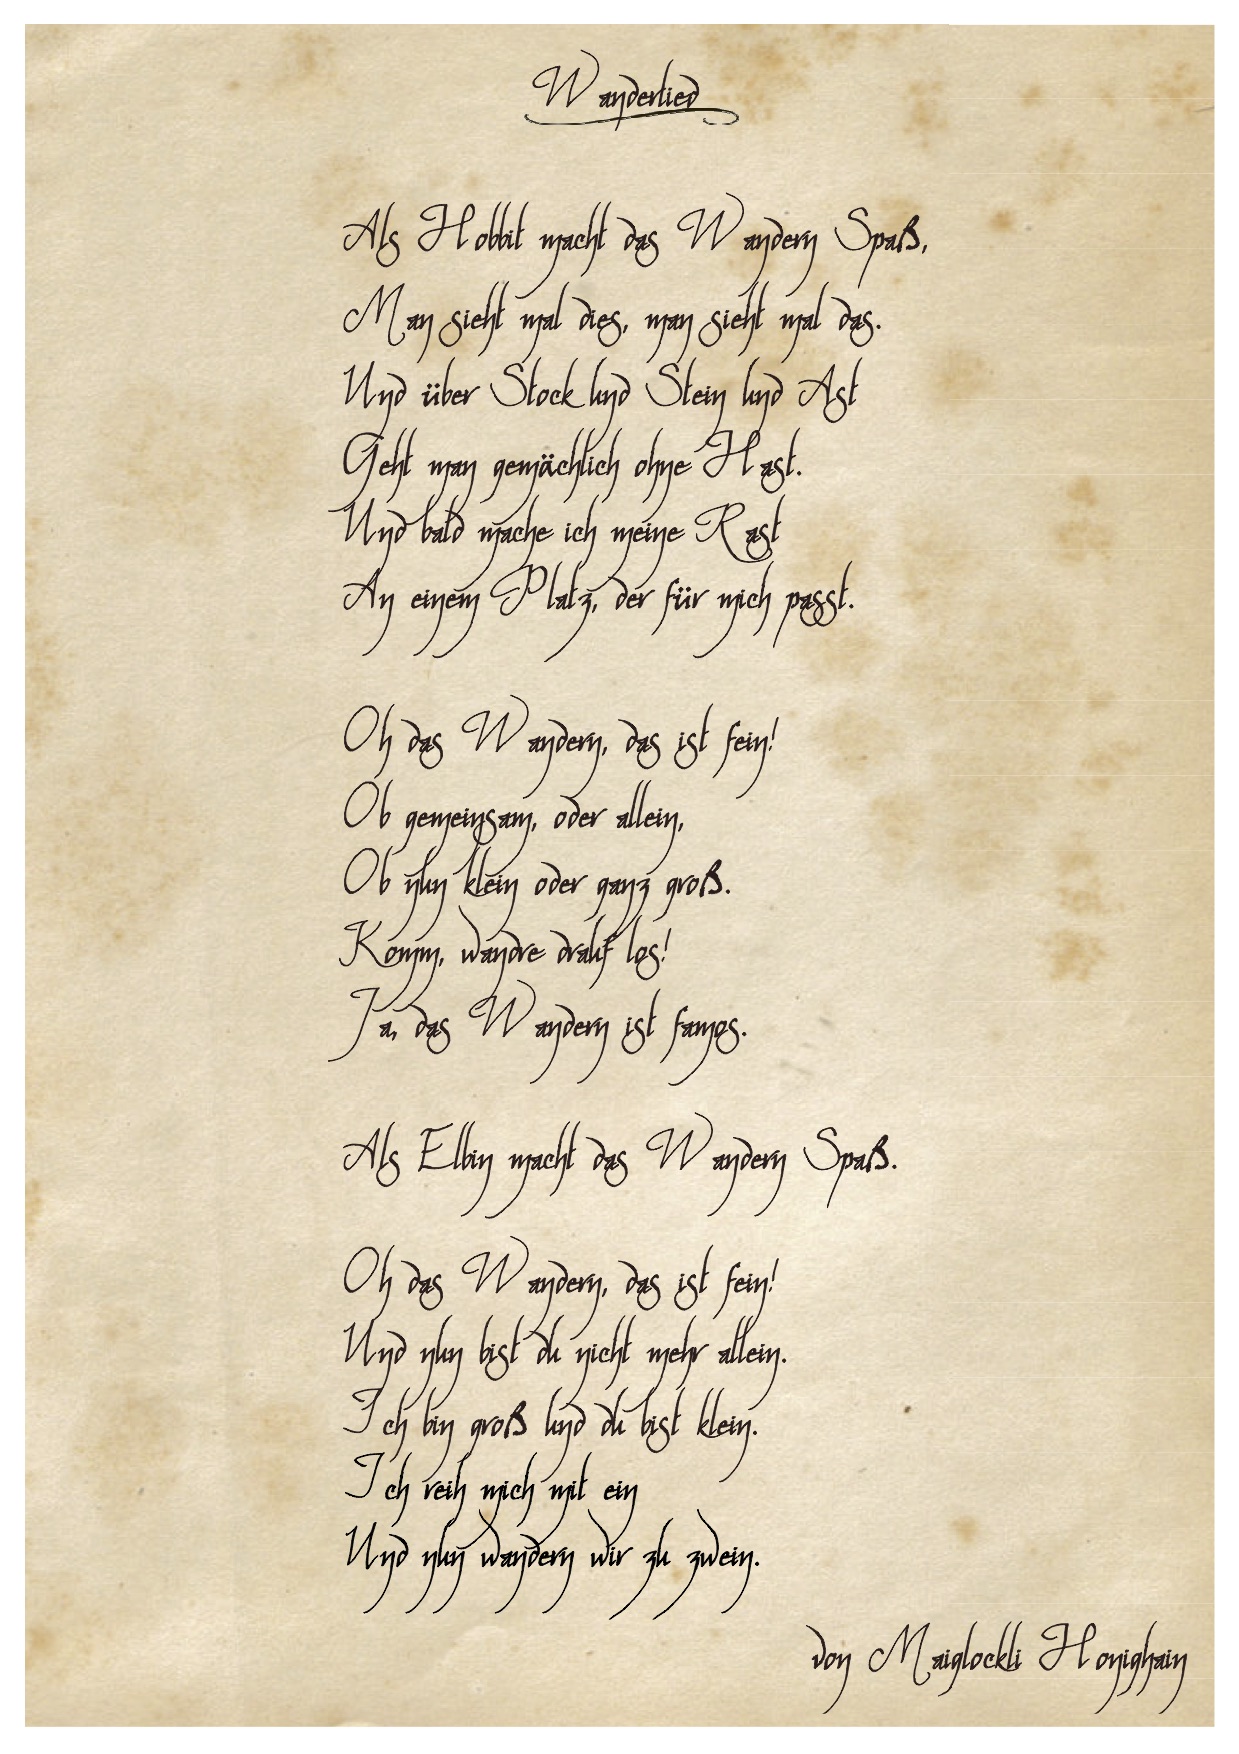 Wanderlied
Als Hobbit macht das Wandern Spaß,
Man sieht mal dies, man sieht mal das.
Und über Stock und Stein und Ast
Geht man gemächlich ohne Hast.
Und bald mache ich meine Rast
An einem Platz, der für mich passt.
Oh das Wandern, das ist fein!
Ob gemeinsam, oder allein,
Ob nun klein oder ganz groß.
Komm, wandre drauf los!
Ja, das Wandern ist famos.
Als Elbin macht das Wandern Spaß.
Oh das Wandern, das ist fein!
Und nun bist du nicht mehr allein.
Ich bin groß und du bist klein.
Ich reih mich mit ein
Und nun wandern wir zu zwein.
von Maiglöckli Honighain